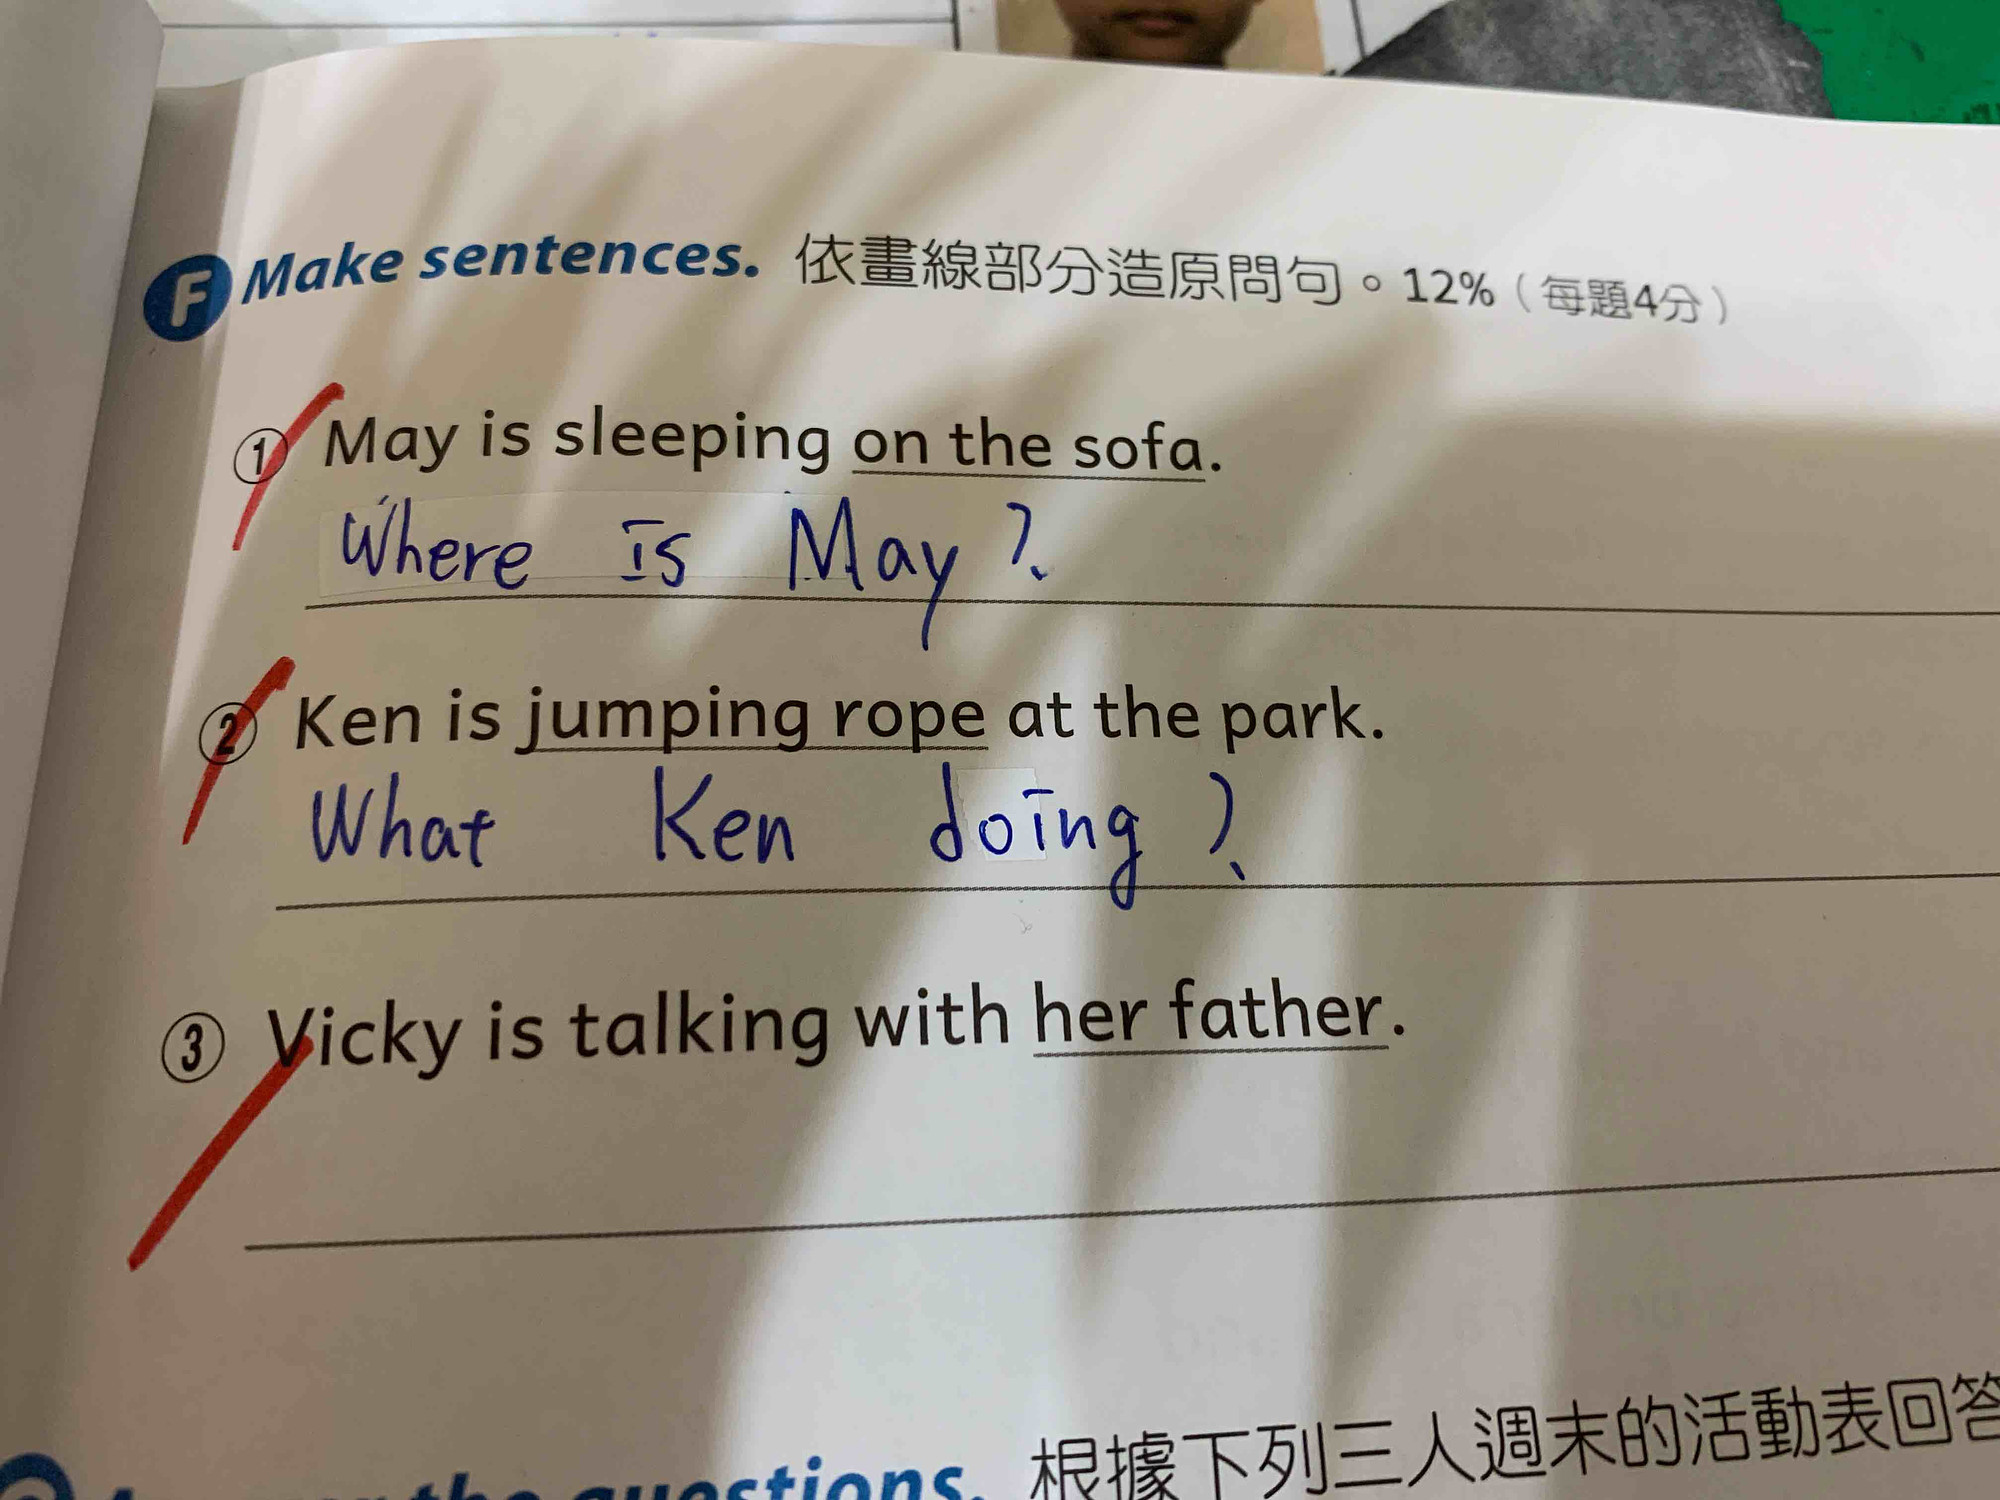 F Make sentences. 依畫線部分造原問句。12%（每題4分）
① May is sleeping on the sofa.
Where is May?
② Ken is jumping rope at the park.
What Ken doing?
③ Vicky is talking with her father.
the questions. 根據下列三人週末的活動表回答